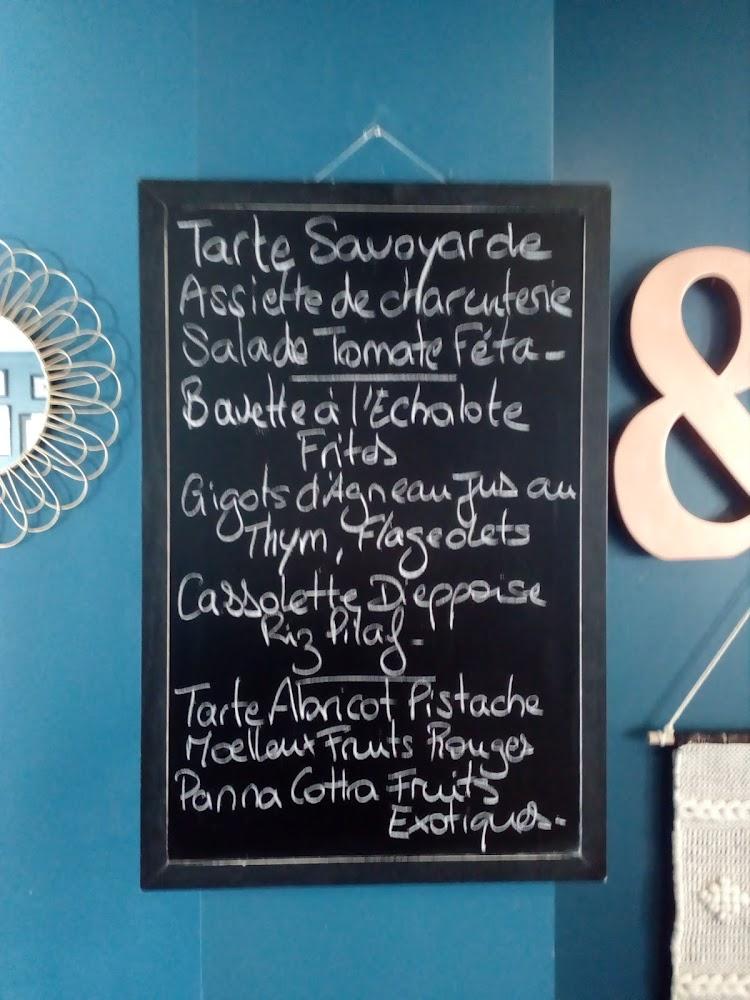 Tarte Savoyarde
Assiette de charcuterie
Salade Tomate Féta -
Bavette à l'Echalote
Frites
Gigots d'Agneau Jus au
Thym, Flageolets
Cassolette Dieppoise
Riz Pilaf -
Tarte Abricot Pistache
Moelleux Fruits Rouges
Panna Cotta Fruits
Exotiques -
&